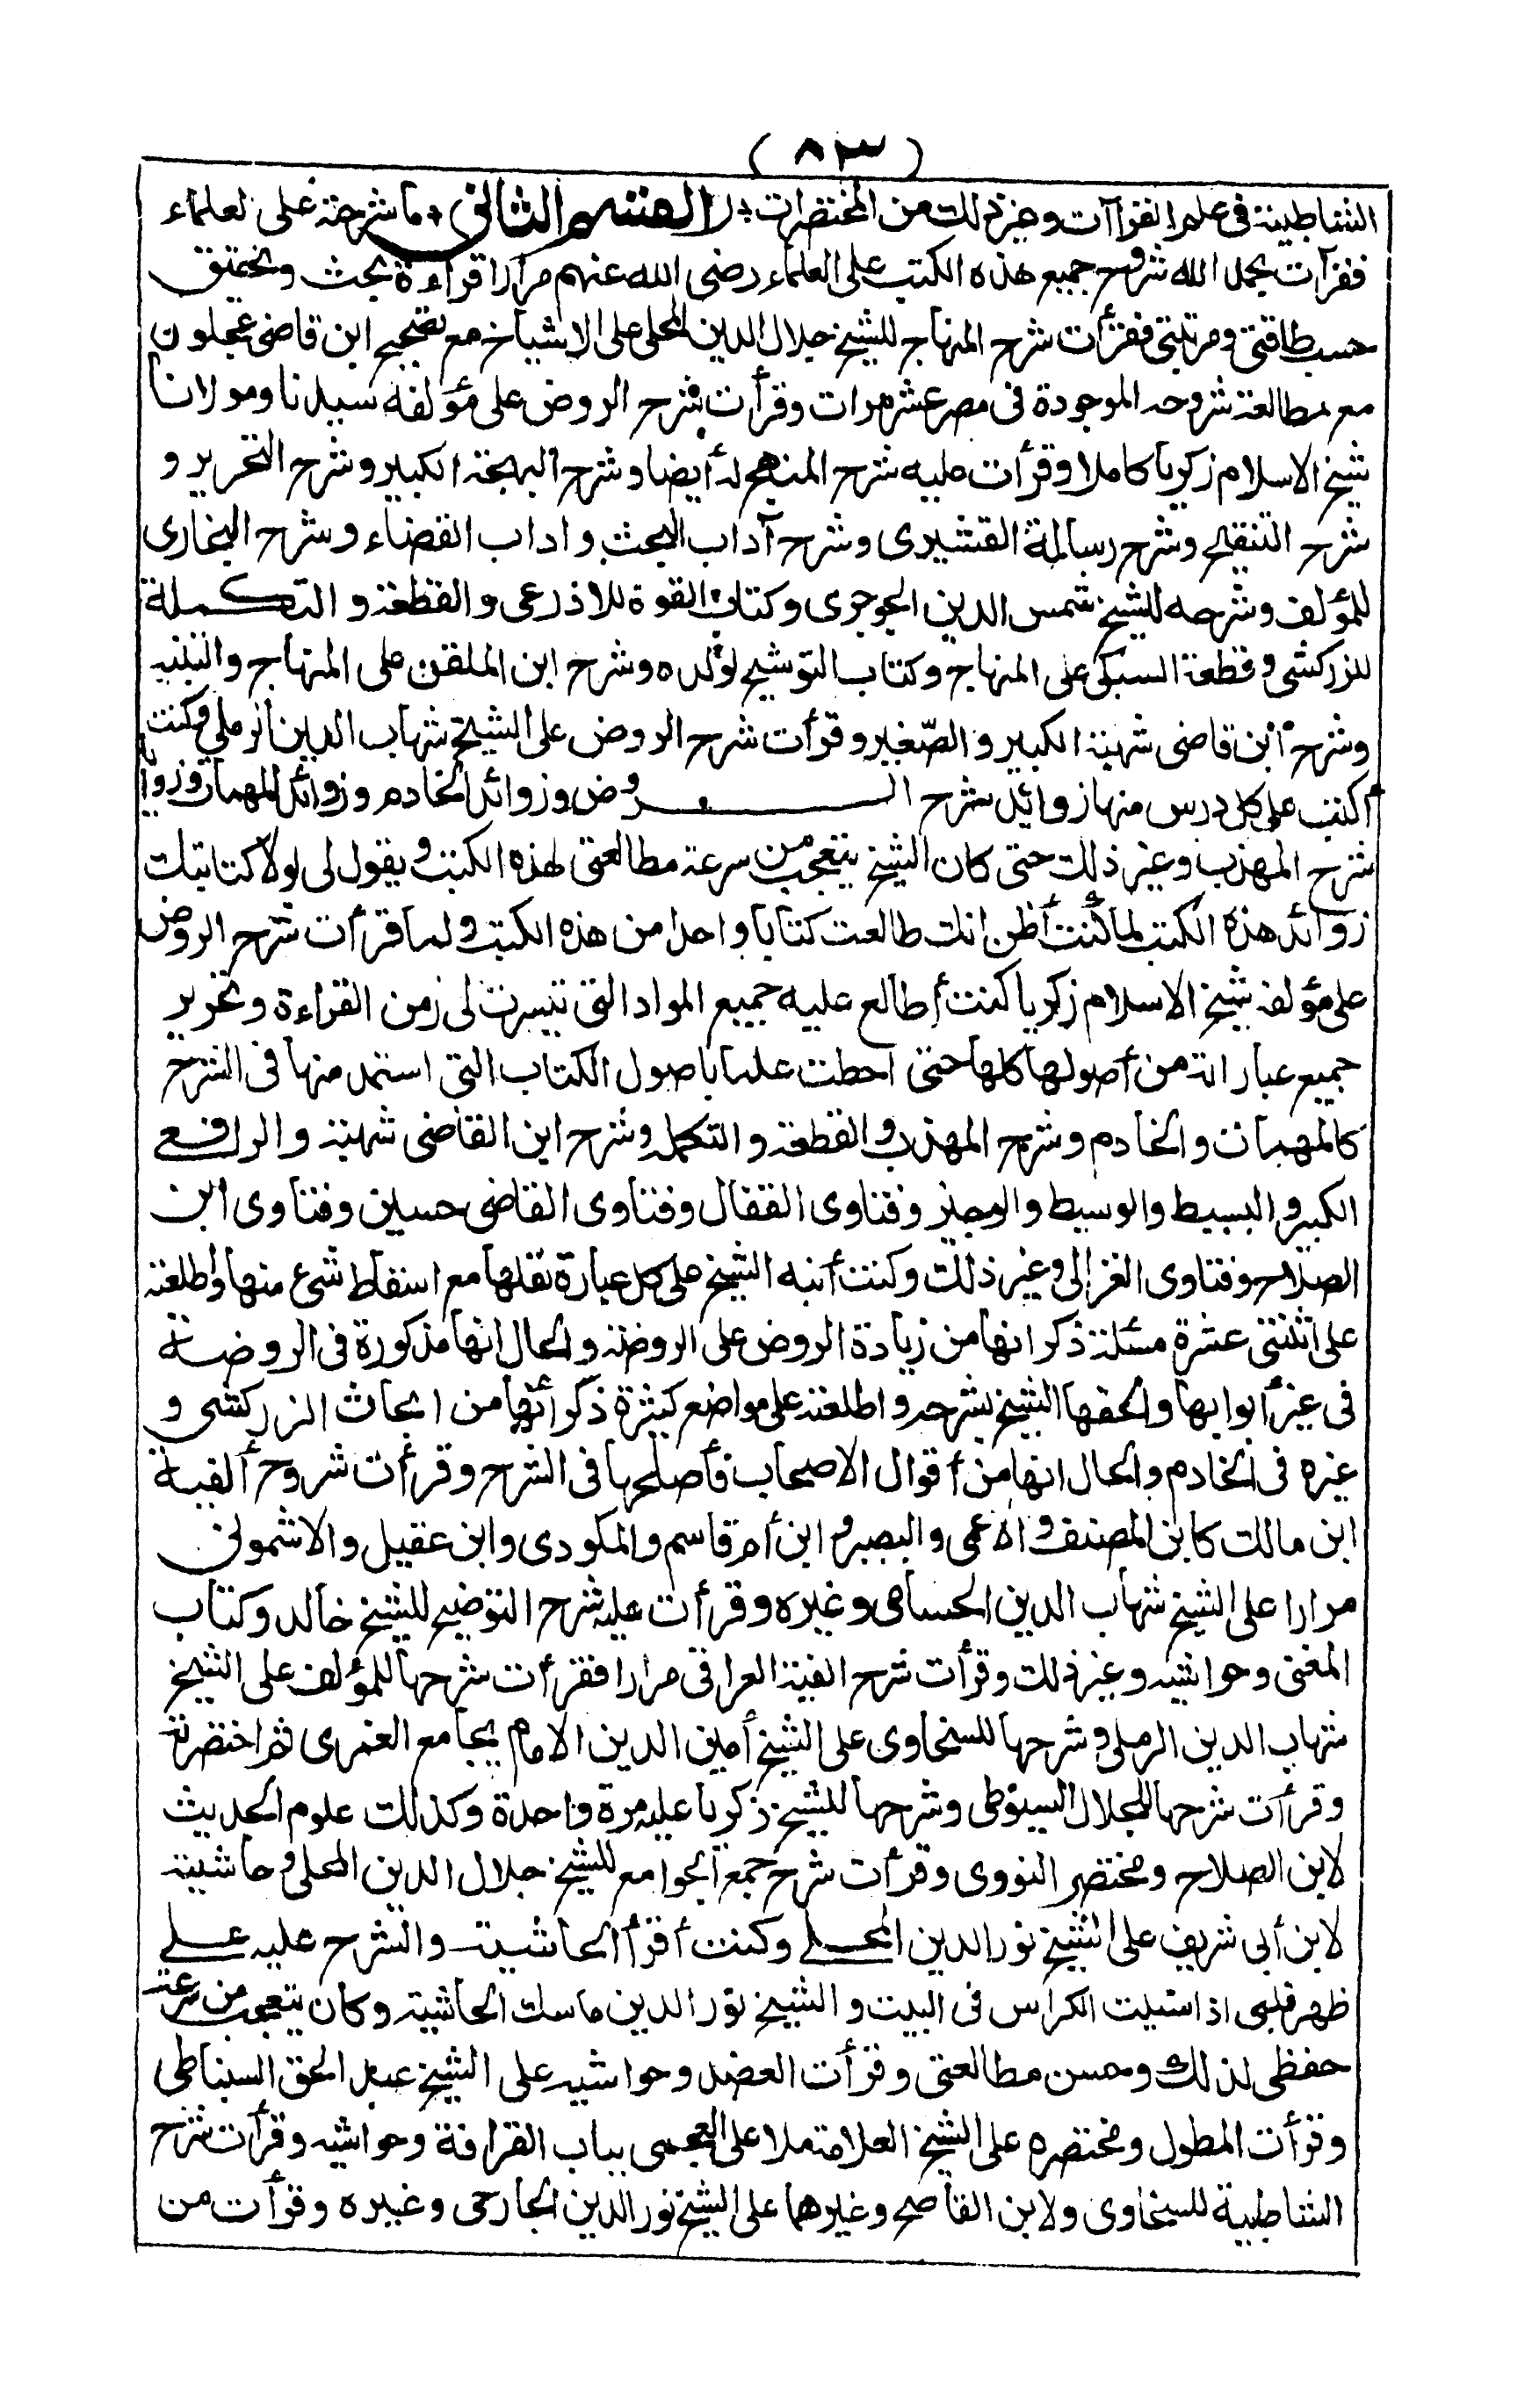 (٨٣)
الشاطبية في علم القراآت وغير ذلك من المختصرات * (القسم الثاني) * ما شرحته على العلماء
فقرأت بحمد الله شروح جميع هذه الكتب على العلماء رضي الله عنهم مرارا قراءة بحث وتحقيق
حسب طاقتي ومرتبتي فقرأت شرح المنهاج للشيخ جلال الدين المحلى على الاشياخ مع تصحيح ابن قاضى عجلون
مع مطالعة شروحه الموجودة فى مصر عشر مرات وقرأت شرح الروض على مؤلفه سيدنا ومولانا
شيخ الاسلام زكريا كاملا وقرأت عليه شرح المنهج له أيضا وشرح البهجة الكبير وشرح التحرير و
شرح التنقيح وشرح رسالة القشيرى وشرح آداب البحث واداب القضاء وشرح البخارى
للمؤلف وشرحه للشيخ شمس الدين الجوجرى وكتاب القوة للاذرعى والقطعة والتكملة
للزركشى وقطعة السبكى على المنهاج وكتاب التوشيح لولده وشرح ابن الملقن على المنهاج والتنبيه
وشرح ابن قاضى شهبة الكبير والصغير وقرأت شرح الروض على الشيخ شهاب الدين الرملي وكنت
أكتب على كل درس منها زوائد شرح الروض وزوائد الخادم وزوائد المهمات وزوائد
شرح المهذب وغير ذلك حتى كان الشيخ يتعجب من سرعة مطالعتى لهذه الكتب ويقول لى لولا كتابتك
زوائد هذه الكتب لما كنت أظن انك طالعت كتابا واحدا من هذه الكتب ولما قرأت شرح الروض
على مؤلفه شيخ الاسلام زكريا كنت أطالع عليه جميع المواد التى تيسرت لى زمن القراءة وتحرير
جميع عباراته من أصولها كلها حتى احطت علما باصول الكتاب التى استمد منها فى الشرح
كالمهمات والخادم وشرح المهذب والقطعة والتكملة وشرح ابن القاضى شهبة والرافعى
الكبير والبسيط والوسيط والوجيز وفتاوى القفال وفتاوى القاضى حسين وفتاوى ابن
الصلاح وفتاوى الغزالى وغير ذلك وكنت أنبه الشيخ على كل عبارة نقلها مع اسقاط شئ منها واطلعته
على اثنتى عشرة مسئلة ذكر انها من زيادة الروض على الروضة والحال انها مذكورة فى الروضة
فى غير أبوابها والحقها الشيخ بشرحه واطلعته على مواضع كثيرة ذكر أنها من ابحاث الزركشى و
غيره فى الخادم والحال انها من أقوال الاصحاب فأصلحها فى الشرح وقرأت شروح ألفية
ابن مالك كابن المصنف والاعمى والبصير و ابن أم قاسم والمكودى وابن عقيل والاشمونى
مرارا على الشيخ شهاب الدين الحسامى وغيره وقرأت عليه شرح التوضيح للشيخ خالد وكتاب
المغنى وحواشيه وغير ذلك وقرأت شرح الفية العراقى مرارا فقرأت شرحها للمؤلف على الشيخ
شهاب الدين الرملى وشرحها للسخاوى على الشيخ أمين الدين الامام بجامع الغمرى ثم اختصرته
وقرأت شرحها للجلال السيوطى وشرحها للشيخ زكريا عليه مرة واحدة وكذلك علوم الحديث
لابن الصلاح ومختصر النووى وقرأت شرح جمع الجوامع للشيخ جلال الدين المحلى وحاشيته
لابن أبى شريف على الشيخ نور الدين المحلى وكنت أقرأ الحاشية والشرح عليه على
ظهر قلبى اذا نسيت الكراس فى البيت والشيخ نور الدين ماسك الحاشية وكان يتعجب من سرعة
حفظى لذلك وحسن مطالعتى وقرأت العضد وحواشيه على الشيخ عبد الحق السنباطى
وقرأت المطول ومختصره على الشيخ العلامة ملا على العجمى بباب القرافة وحواشيه وقرأت شرح
الشاطبية للسخاوى ولابن القاصح وغيرهما على الشيخ نور الدين الجارحى وغيره وقرأت من